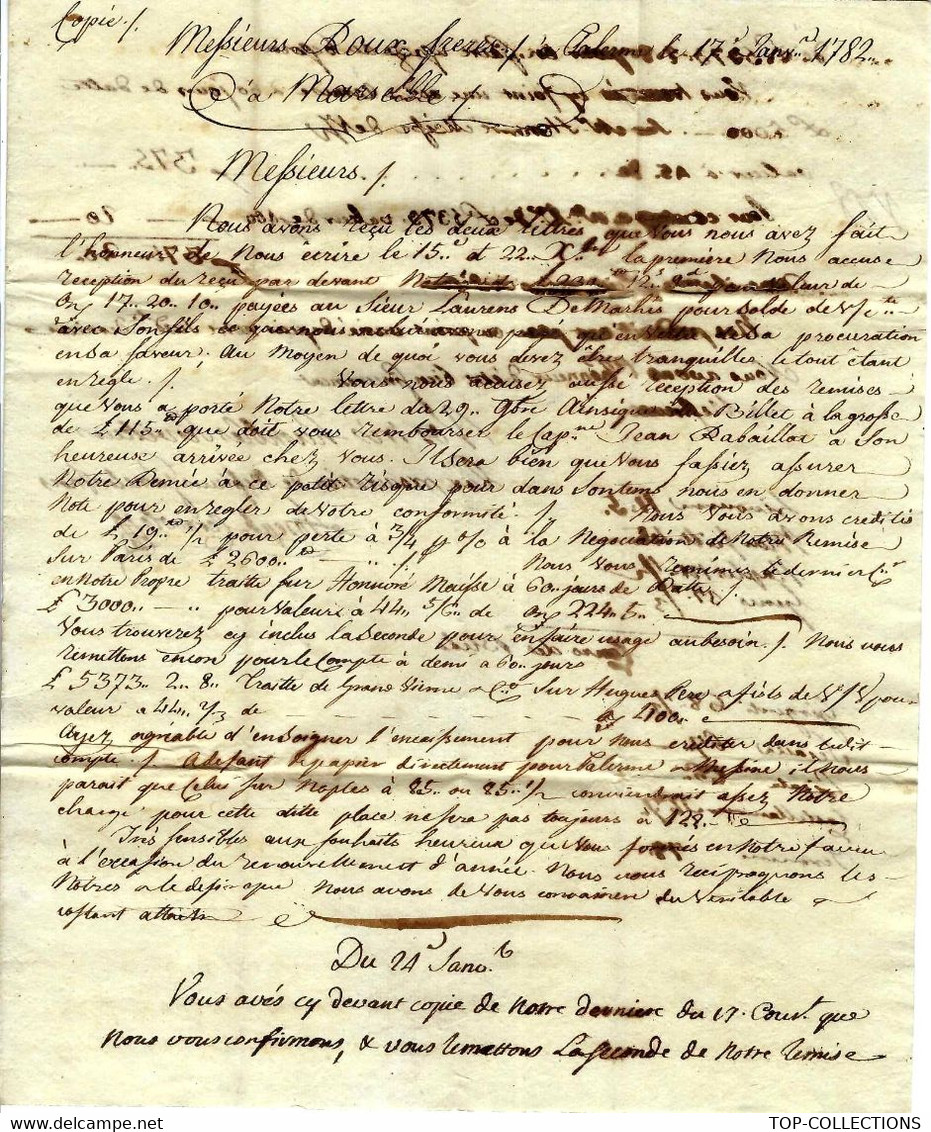 Copie ./.
Messieurs Roux freres ./. à Palerme le 17.e Janv.r 1782..
à Marseille
Messieurs ./.
Nous avons reçu les deux lettres que Vous nous avez fait
l'honneur de Nous écrire le 15.e et 22.. X.bre la premiere Nous accuse
reception du reçu par devant Notaire de la valeur de
On 17.. 20.. 10.. payées au Sieur Laurens De Mathis pour Solde de
avec Son fils de Sa procuration
en Sa faveur. Au Moyen de quoi vous devez être tranquilles le tout étant
en regle ./. Vous nous accusez aussi réception des remises
que Vous a porté Notre lettre du 29.. 9bre Ainsi que Billet à la grosse
de £ 115.. que doit vous rembourser le Cap.ne Jean Rabaillat à Son
heureuse arrivée chez Vous. Il Sera bien que Vous fassiez assurer
Notre Demie à ce petit risque pour dans Son tems nous en donner
Note pour en regler de Votre conformité ./. Nous Vous avons credité
de £ 19.. 1/2 pour perte à 3/4 p % à la Negociation de Notre Remise
Sur Paris de £ 2600.. Nous Vous remimes le dernier C.r
en Notre Propre traite sur Honnoré Maisse à 60.. jours de Datte ./.
£ 3000.. — .. pour Valeur à 44.. 5/6.. de On 224.. 5..
Vous trouverez cy inclus la Seconde pour en faire usage au besoin ./. Nous vous
remettons encor pour le Compte à demi à 60.. jours
£ 5373.. 2.. 8.. Traitte de Grand Vienne & C.e Sur Hugues Pere & fils de V/V pour
valeur à 44.. 2/3 de On 400..
Ayez agréable d'en Soigner l'encaissement pour Nous crediter dans ledit
compte ./. A defaut de papier directement pour Palerme ou Messine il Nous
parait que Celui sur Naples à 85.. ou 85.. 1/2 conviendrait assez Notre
change pour cette ditte place ne sera pas toujours à 122..
Très sensibles aux souhaits heureux que Vous formés en Notre faveur
à l'occasion du renouvellement d'année. Nous vous réciproquons les
Notres & le desir que Nous avons de Vous convaincre du Veritable &
constant attach.t
Du 24.e Janv.r
Vous avés cy devant copie de Notre derniere du 17. Cour.t que
Nous vous confirmons, & vous remettons La Seconde de Notre remise
TOP-COLLECTIONS